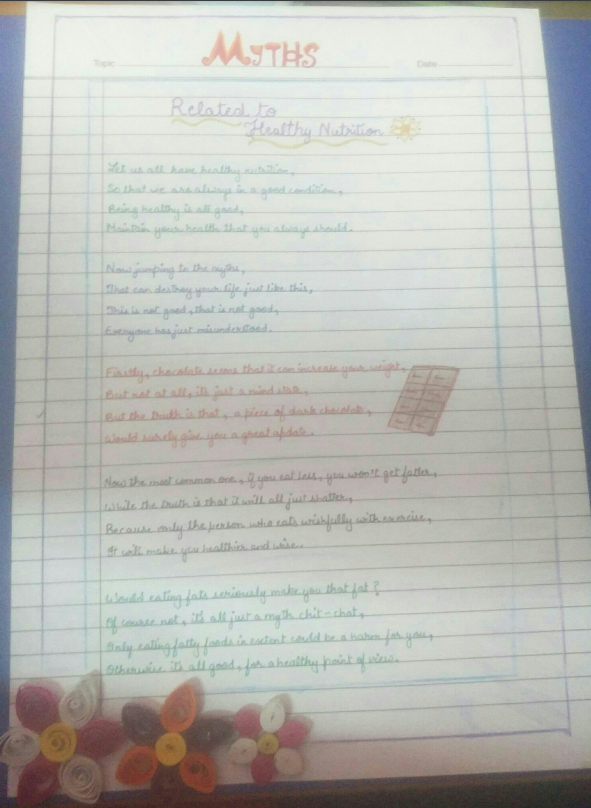 MYTHS
Topic
Date
Related to
Healthy Nutrition
Let us all have healthy nutrition,
So that we are always in a good condition,
Being healthy is all good,
Maintain your health that you always should.
Now jumping to the myths,
That can destroy your life just like this,
This is not good, that is not good,
Everyone has just misunderstood.
Firstly, chocolate seems that it can increase your weight,
But not at all, it's just a mind state,
But the truth is that, a piece of dark chocolate,
Would surely give you a great update.
Now the most common one, if you eat less, you won't get fatter,
While the truth is that it will all just shatter,
Because only the person who eats wishfully with exercise,
It will make you healthier and wise.
Would eating fats seriously make you that fat?
Of course not, it's all just a myth chit-chat,
Only eating fatty foods in extent could be a harm for you,
Otherwise it's all good, for a healthy point of view.